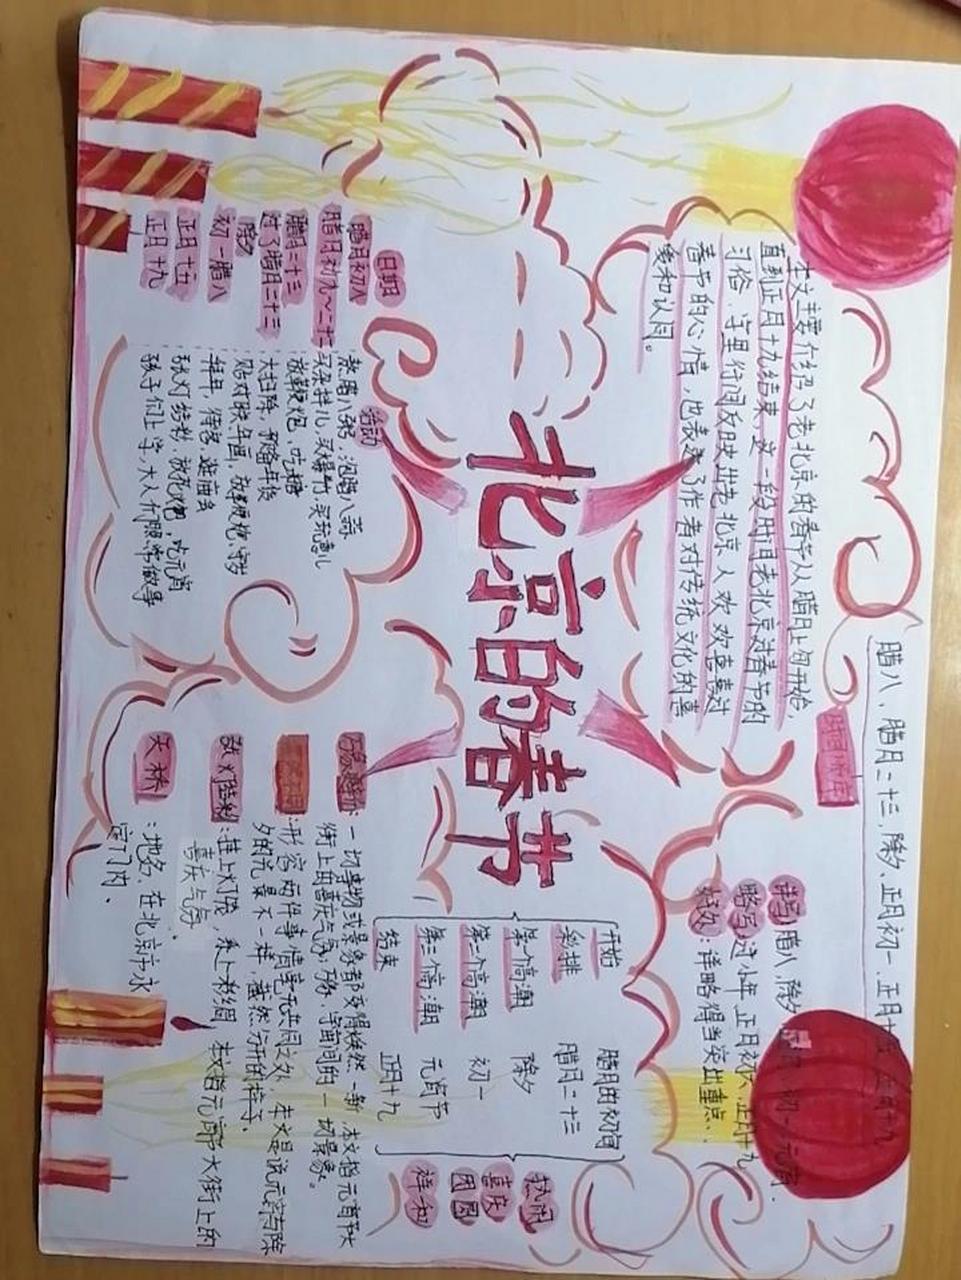 腊八、腊月二十三,除夕、正月初一、正月十五、正月十九
时间顺序
本文主要介绍了老北京的春节从腊月上旬开始,
直到正月十九结束,这一段时间老北京过春节的
习俗,字里行间反映出老北京人欢欢喜喜过
春节的心情,也表达了作者对传统文化的喜
爱和认同。
详写:腊八,除夕,初一,元宵.
略写:过小年,正月初六.正月十九
好处:详略得当突出重点.
北京的春节
开始 腊月的初旬
彩排 腊月二十三
第一个高潮 除夕
第二个高潮 初一
第三个高潮 元宵节
结束 正月十九
热闹
喜庆
团圆
祥和
日期 活动
腊月初八 熬腊八粥,泡腊八蒜
腊月初九~二十二 买杂拌儿,买爆竹,买玩意儿
腊月二十三 放鞭炮、吃糖
过了腊月二十三 大扫除,预备年货
除夕 贴对联年画,放鞭炮,守岁
初一 腊八 拜年,待客,逛庙会
正月十五 张灯结彩,放花炮,吃元宵
正月十九 孩子们上学,大人们照常做事
万象更新:一切事物或景象都变得焕然一新.本文指元宵节大
街上的喜庆气氛,万象,宇宙间的一切景象。
:形容两件事情毫无共同之处,本文是说元宵与除
夕的光景不一样,截然分开的样子.
张灯结彩:挂上灯笼,系上彩绸,本文指元宵节大街上的
喜庆气氛.
天桥:地名,在北京市永
定门内.